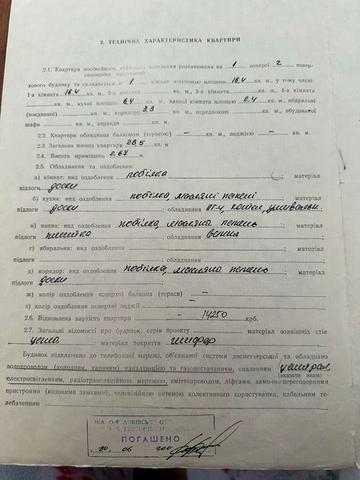 2. ТЕХНІЧНА ХАРАКТЕРИСТИКА КВАРТИРИ
2.1. Квартира розташована на 1 поверсі 2 повер-
хового будинку та складається з 1 кімнат житловою площею 16,4 кв. м, у тому числі:
1-а кімната 16,4 кв. м, 2-а кімната — кв. м, 3-а кімната — кв. м, 4-а кімната
— кв. м, кухні площею 6,4 кв. м, ванної кімнати площею 2,4 кв. м, вбиральні
(поєднаної) — кв. м, коридору 3,3 кв. м, передпокою — кв. м, вбудованої
шафи — кв. м,
2.2. Квартира обладнана балконом (терасою) — кв. м, лоджією — кв. м.
2.3. Загальна площа квартири 28,5 кв. м.
2.4. Висота приміщень 2,67 м.
2.5. Обладнання та оздоблення:
а) кімнат: вид оздоблення побілка ; матеріал
підлоги доски
б) кухня: вид оздоблення побілка, масляні панелі ; матеріал
підлоги доски ; обладнання
в) ванна: вид оздоблення побілка, масляна панель ; матеріал
підлоги плитка ; обладнання ванна
г) вбиральня: вид оздоблення ; матеріал
підлоги ; обладнання
д) коридор: вид оздоблення побілка, масляна панель ; матеріал
підлоги доски
ж) колір оздоблення відкритої балкона (тераси) —
з) колір оздоблення лоджії —
2.6. Відновлена вартість квартири — 14250 крб.
2.7. Загальні відомості про будинок: серія проекту матеріал зовнішніх стін
цегла матеріал покриття шифер
Будинок підключено до телефонної мережі, об'єднаної системи диспетчерської та обладнано
водопроводом (холодним, гарячим) каналізацією та газопостачанням, опаленням
(вказати яким)
електроосвітленням, радіотрансляційною мережею, сміттєпроводом, ліфтами, замково-переговорними
пристроями (кодовими замками), телевізійною антеною колективного користування, кабельним те-
лебаченням
ПОГАШЕНО